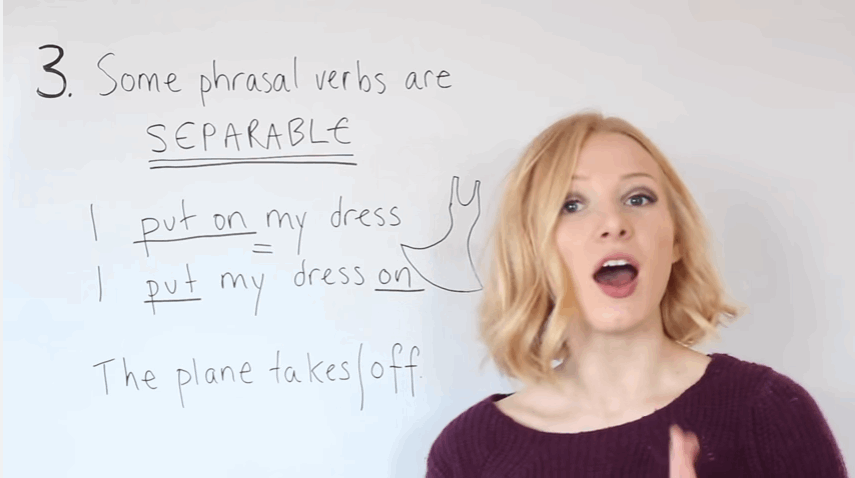 3. Some phrasal verbs are
SEPARABLE
I put on my dress
=
I put my dress on
The plane takes/off.